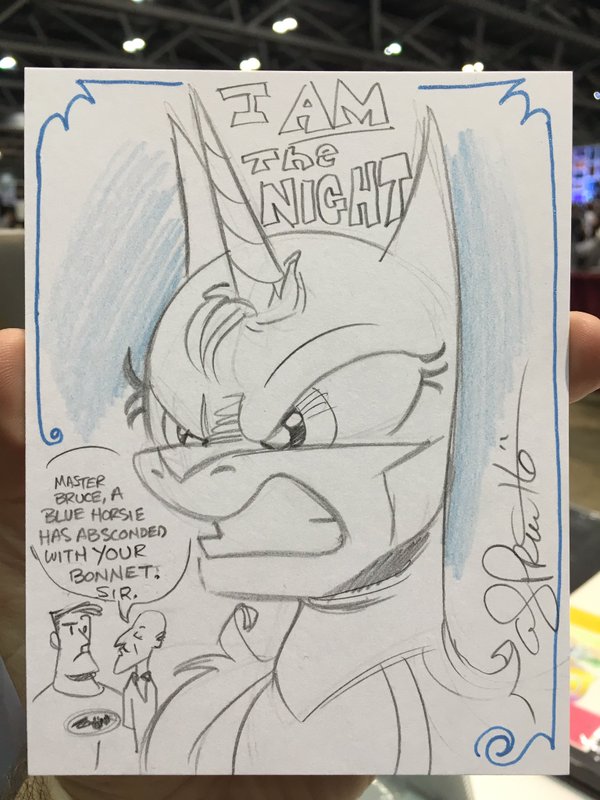 I AM
The
NIGHT
MASTER
BRUCE, A
BLUE HORSIE
HAS ABSCONDED
WITH YOUR
BONNET.
SIR.